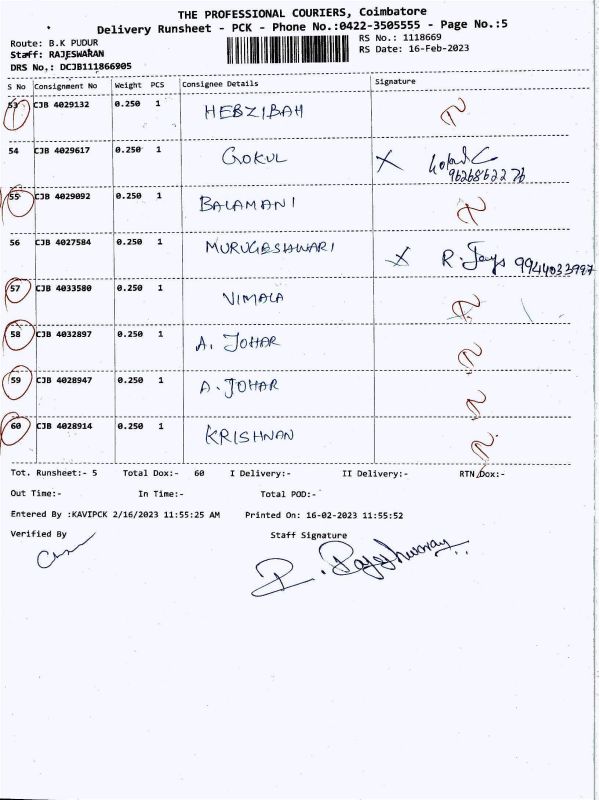 THE PROFESSIONAL COURIERS, Coimbatore
Delivery Runsheet - PCK - Phone No.:0422-3505555 - Page No.:5
Route: B.K PUDUR
RS No.: 1118669
Staff: RAJESWARAN
RS Date: 16-Feb-2023
DRS No,: DCJB111866905
S No Consignment No Weight PCS Consignee Details Signature
53 CJB 4029132 0.250 1 HEBZIBAH
54 CJB 4029617 0.250 1 GOKUL X
55 CJB 4029092 0.250 1 BALAMANI
56 CJB 4027584 0.250 1 MURUGESHWARI X R. 9944033997
57 CJB 4033580 0.250 1 VIMALA
58 CJB 4032897 0.250 1 A. JOHAR
59 CJB 4028947 0.250 1 A. JOHAR
60 CJB 4028914 0.250 1 KRISHNAN
Tot. Runsheet:- 5 Total Dox:- 60 I Delivery:- II Delivery:- RTN Dox:-
Out Time:- In Time:- Total POD:-
Entered By :KAVIPCK 2/16/2023 11:55:25 AM Printed On: 16-02-2023 11:55:52
Verified By Staff Signature